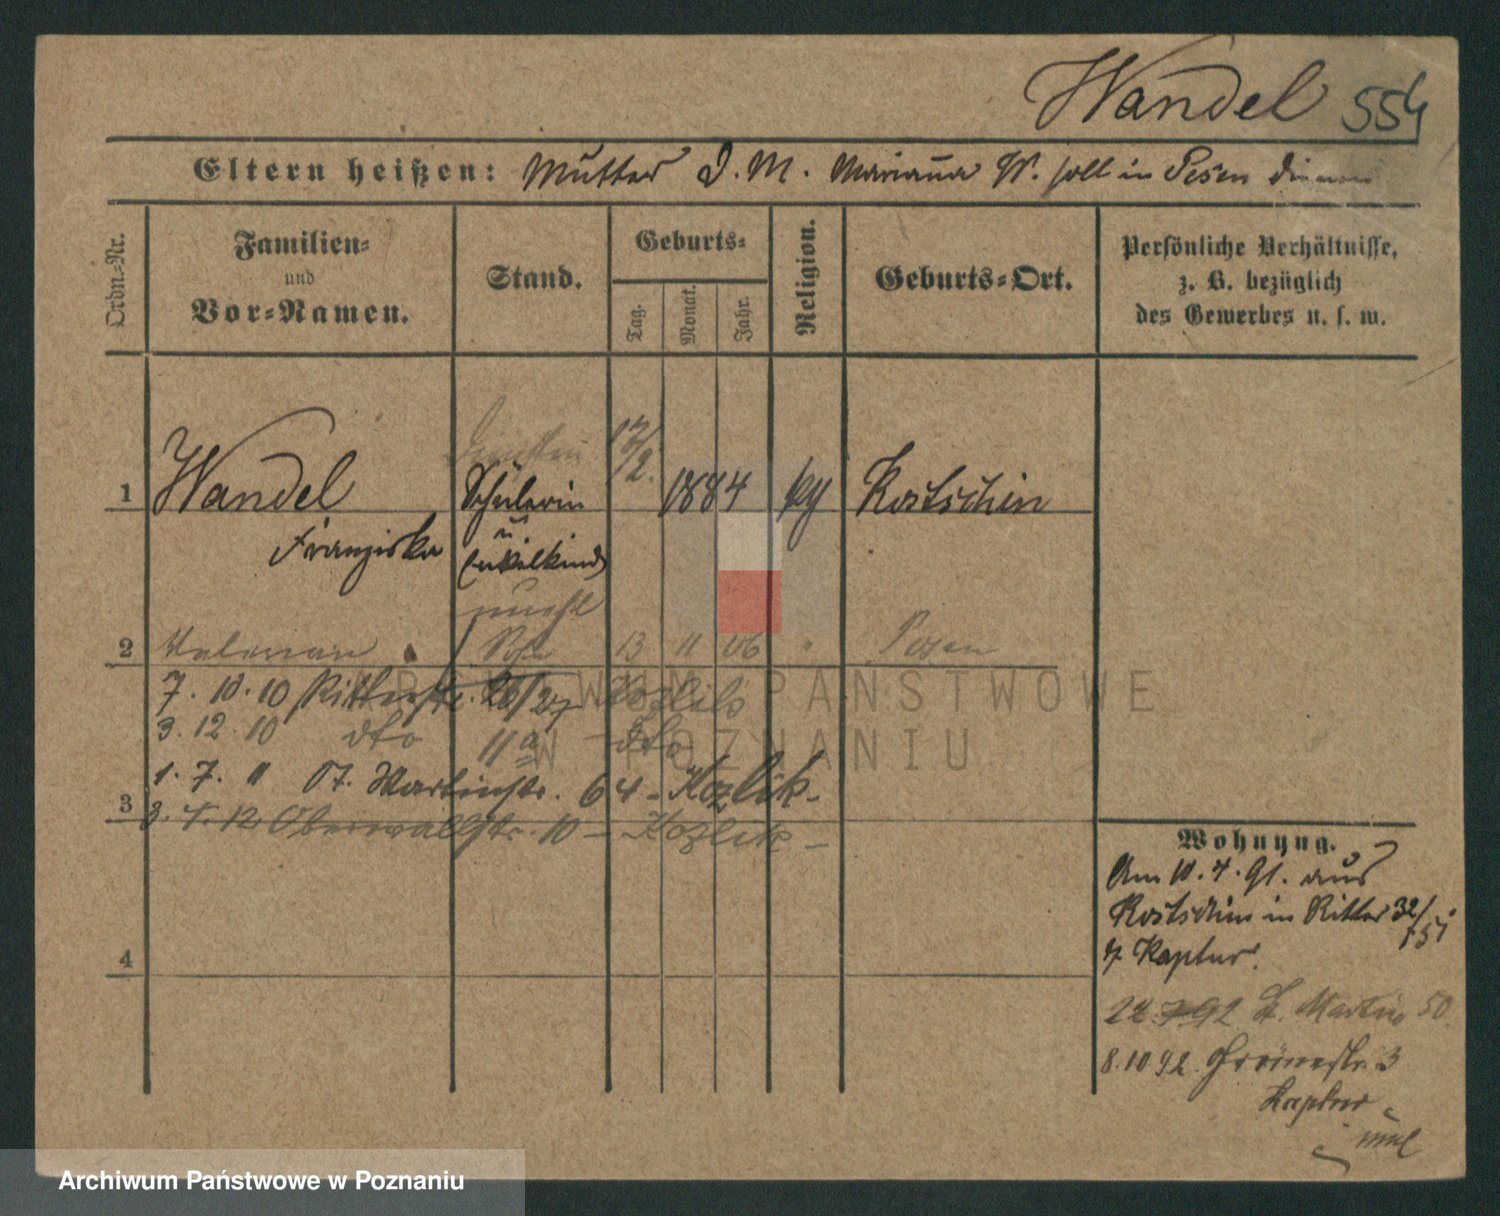 Wandel 554
Eltern heißen: Mutter D. M. Marianna W. soll in Posen dienen
Ordn.-Nr.
Familien-
und
Vor-Namen.
Stand.
Geburts-
Tag.
Monat.
Jahr.
Religion.
Geburts-Ort.
Persönliche Verhältnisse,
z. B. bezüglich
des Gewerbes u. s. w.
1 Wandel Schülerin 17/2. 1884 Kostschin
Franziska u
Enkelkind
unehl
2 Valerian Sohn 13 11 06 " Posen
7. 10. 10 Ritterstr. 26/27 Kozlik
3. 12. 10 dto 11a dto
1. 7. 11 St. Martinstr. 64 - Kozlik -
3
3. 4. 12 Oberwallstr. 10 - Kozlik -
4
Wohnung.
Am 10. 4. 91. aus
Kostschin in Ritter 32/
Kaptur.
22. 92 St. Martin 50.
8. 10 92. Grünestr. 3
Kaptur
ARCHIWUM PAŃSTWOWE
W POZNANIU
Archiwum Państwowe w Poznaniu